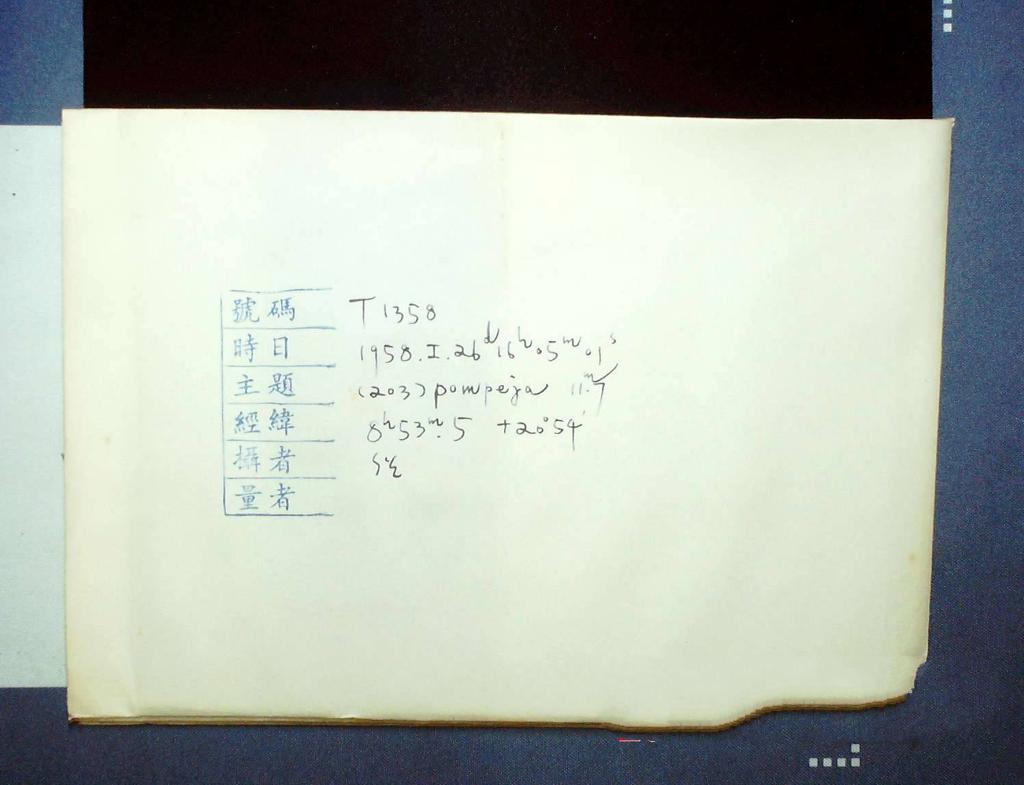 號碼 T 1358
時日 1958.I.26ᵈ16ʰ05ᵐ01ˢ
主題 (203) pompeja 11ᵐ.7
經緯 8ʰ53ᵐ.5 +20°54'
攝者
量者